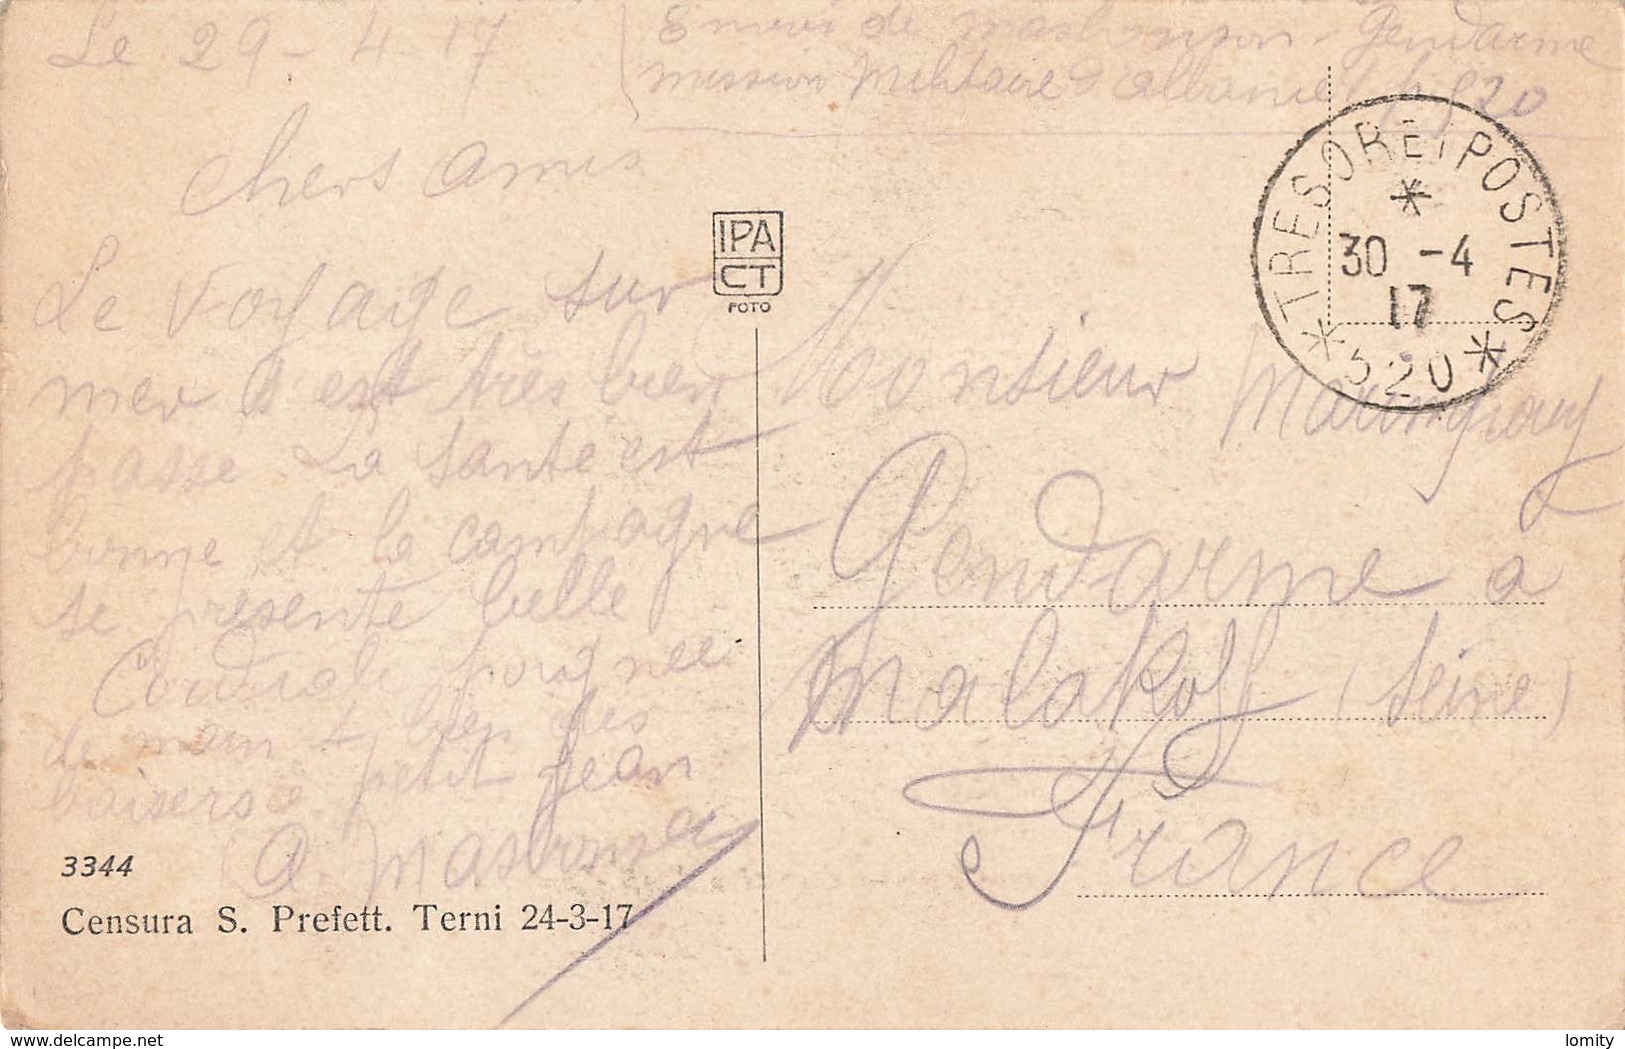 Le 29-4-17
Envoi de Gendarme
mission Militaire d'albanie s p 520
Chers Amis
Le voyage sur
mer s'est très bien
passé. La santé est
bonne et la campagne
se présente belle
Cordiale poignée
de main et bien des
baisers à petit Jean
3344
Censura S. Prefett. Terni 24-3-17
IPA
CT
FOTO
TRESOR ET POSTES
30 -4
17
* 520 *
Monsieur
Gendarme a
Malakoff (Seine)
France
delcampe.net
lomity